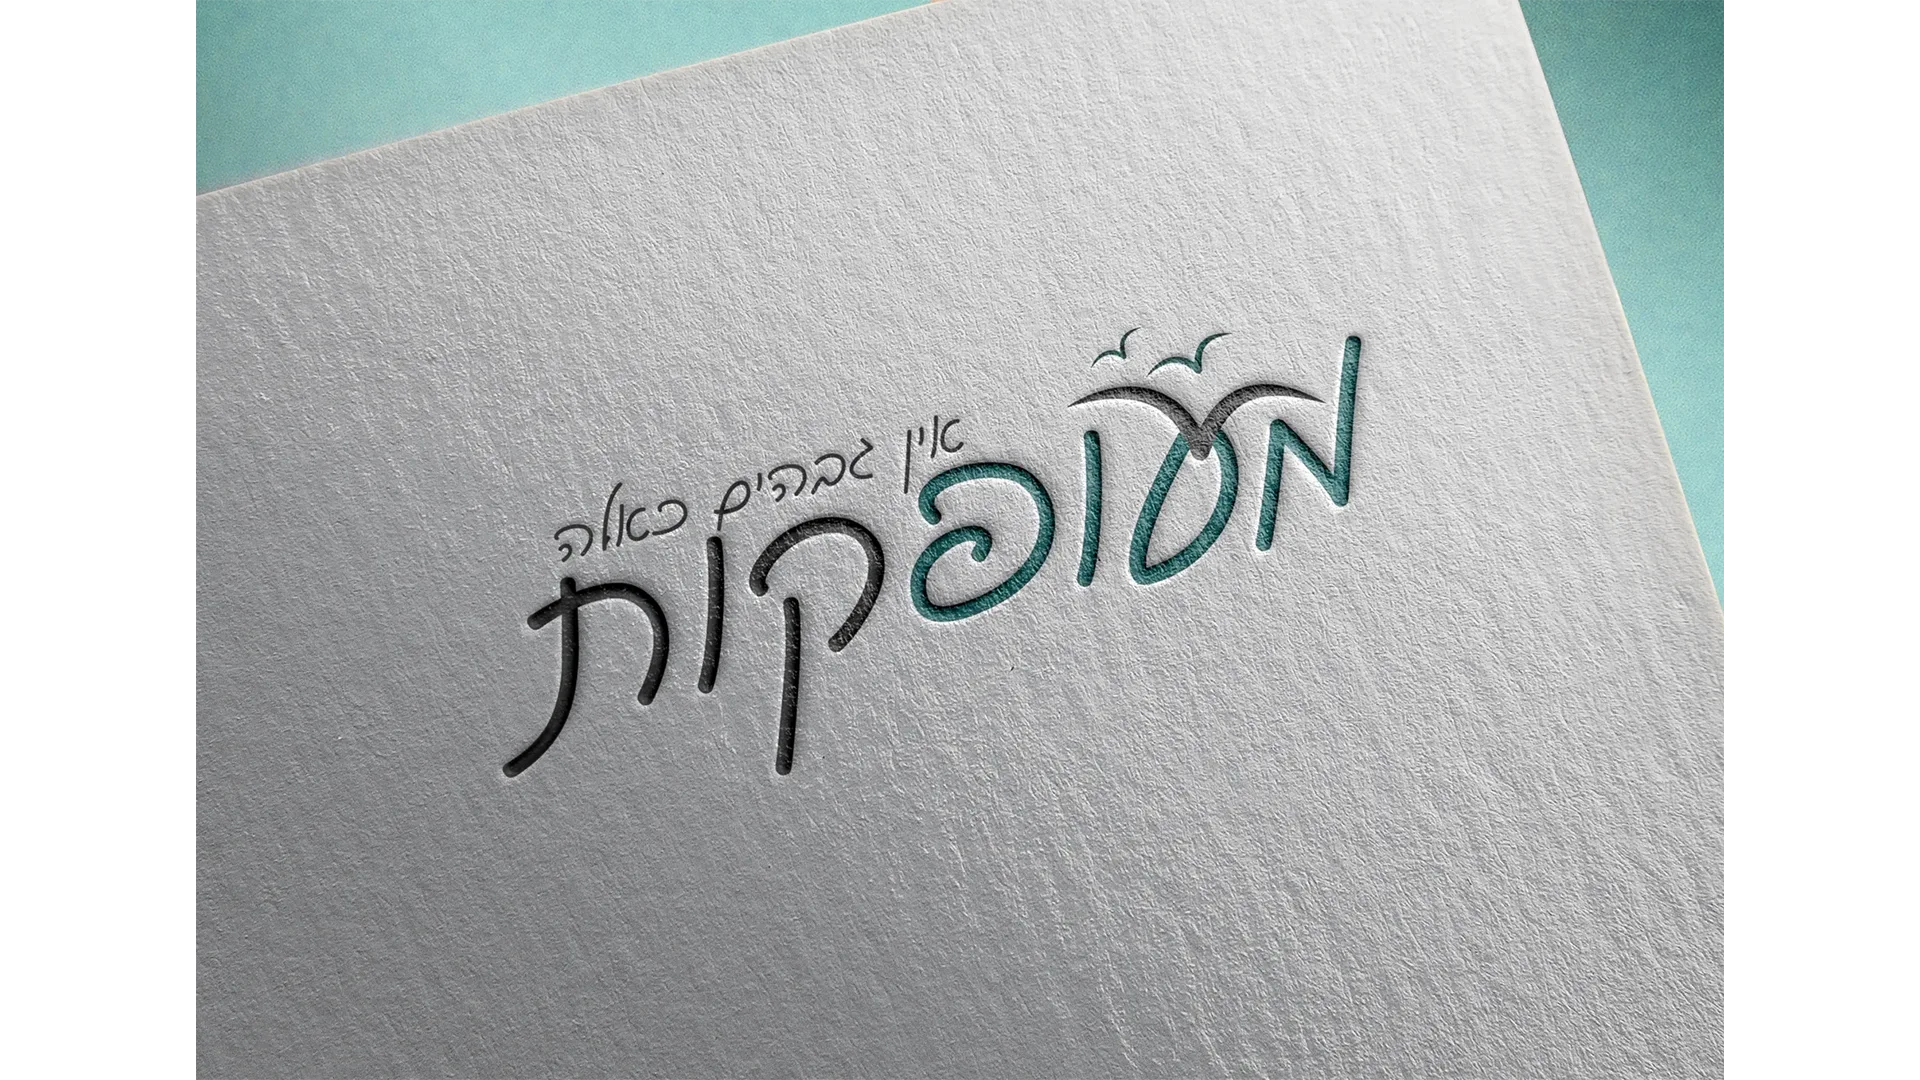 אין גבהים כאלה
מעופקות